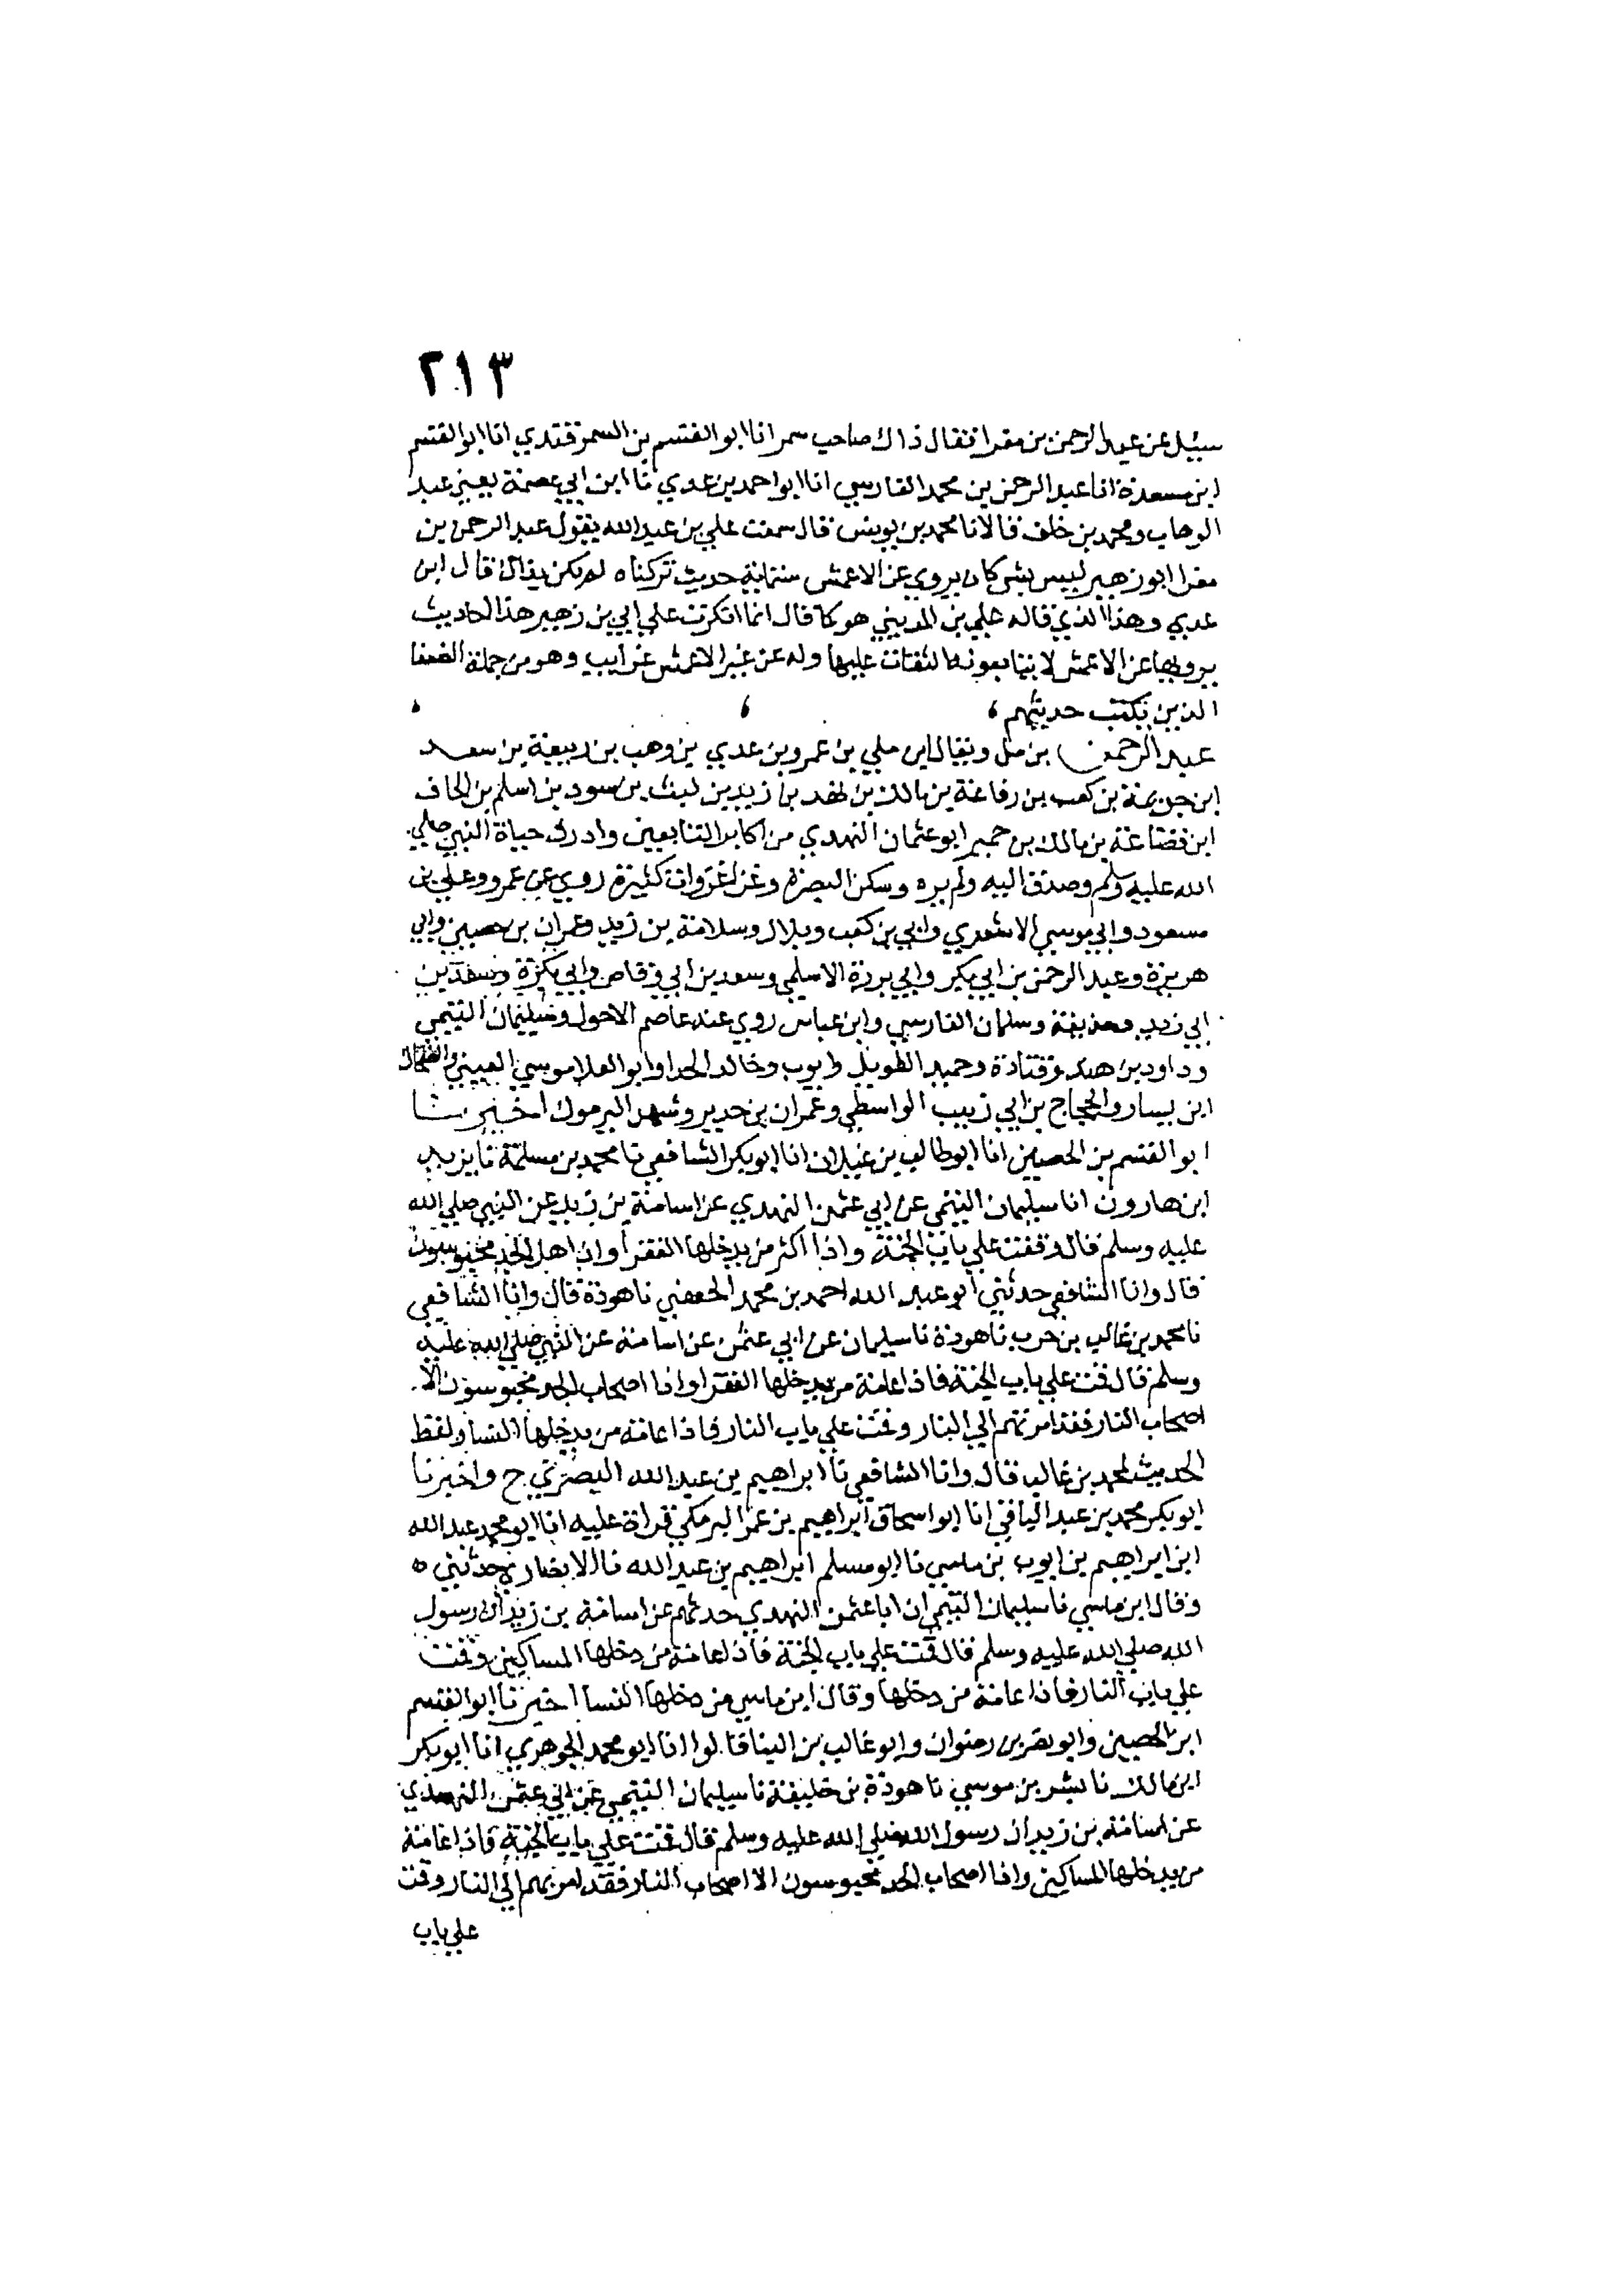 ٢١٣
سيل عن عبد الرحمن بن مغرا فقال ذاك صاحب سمر انا ابو القسم بن السمرقندي انا ابو القسم
ابن مسعدة انا عبد الرحمن بن محمد الفارسي انا ابو احمد بن عدي نا ابن ابي عصمة يعني عبد
الوهاب ومحمد بن خلف قالا نا محمد بن يونس قال سمعت علي بن عبد الله يقول عبد الرحمن بن
مغرا ابو زهير ليس بشي كان يروي عن الاعمش ستماية حديث تركناه لم يكن بذاك قال ابن
عدي وهذا الذي قاله علي بن المديني هو كما قال انما انكرت علي ابي بن زهير هذا لحاديث
يرويها عن الاعمش لا يتابعونه الثقات عليها وله عن غير الاعمش غرايب وهو من جملة الضعفا
الذين يكتب حديثهم
عبد الرحمن بن مل ويقال ابن ملي بن عمرو بن عدي بن وهب بن ربيعة بن سعد
ابن جزيمة بن كعب بن رفاعة بن مالك بن نهد بن زيد بن ليث بن سود بن اسلم بن الحاف
ابن قضاعة بن مالك بن حمير ابو عثمان النهدي من اكابر التابعين وادرك حياة النبي صلي
الله عليه وسلم وصدق اليه ولم يره وسكن البصرة وغزا غزوات كثيرة روي عن عمر وعلي بن
مسعود وابي موسي الاشعري وابي بن كعب وبلال وسلامة بن زيد وعمران بن حصين وابي
هريرة وعبد الرحمن بن ابي بكر وابي برزة الاسلمي وسعد بن ابي وقاص وابي بكرة وسعد بن
ابي زيد وحذيفة وسلمان الفارسي وابن عباس روي عنه عاصم الاحول وسليمان التيمي
وداود بن هند وقتادة وحميد الطويل وايوب وخالد الحذا وابو العلا موسي العيني والضحاك
ابن يسار والحجاج بن ابي زبيب الواسطي وعمران بن حدير وشهد اليرموك اخبرنا
ابو القسم بن الحصين انا ابو طالب بن غيلان انا ابو بكر الشافعي نا محمد بن مسلمة نا يزيد
ابن هارون انا سليمان التيمي عن ابي عثمن النهدي عن اسامة بن زيد عن النبي صلي الله
عليه وسلم قال وقفت علي باب الجنة واذا اكثر من يدخلها الفقرا وان اهل الجد محبوسون
قال وانا الشافعي حدثني ابو عبد الله احمد بن محمد الجعفي نا هوذة قال وانا الشافعي
نا محمد بن غالب بن حرب نا هوذة نا سليمان عن ابي عثمن عن اسامة عن النبي صلي الله عليه
وسلم قال قمت علي باب الجنة فاذا عامة من يدخلها الفقرا واذا اصحاب الجد محبوسون الا
اصحاب النار فقد امر بهم الي النار وقمت علي باب النار فاذا عامة من يدخلها النسا ولفظ
الحديث لمحمد بن غالب قال وانا الشافعي نا ابراهيم بن عبد الله البصري ح واخبرنا
ابو بكر محمد بن عبد الباقي انا ابو اسحاق ابراهيم بن عمر البرمكي قراة عليه انا ابو محمد عبد الله
ابن ابراهيم بن ايوب بن ماسي نا ابو مسلم ابراهيم بن عبد الله نا الانصاري حدثني ه
وقال ابن ماسي نا سليمان التيمي ان ابا عثمن النهدي حدثهم عن اسامة بن زيد ان رسول
الله صلي الله عليه وسلم قال قمت علي باب الجنة فاذا عامة من دخلها المساكين وقمت
علي باب النار فاذا عامة من دخلها وقال ابن ماسي من دخلها النسا اخبرنا ابو القسم
ابن الحصين وابو نصر بن رضوان وابو غالب بن البنا قالوا انا ابو محمد الجوهري انا ابو بكر
ابن مالك نا بشر بن موسي نا هوذة بن خليفة نا سليمان التيمي عن ابي عثمن النهدي
عن اسامة بن زيد ان رسول الله صلي الله عليه وسلم قال قمت علي باب الجنة فاذا عامة
من يدخلها المساكين واذا اصحاب الجد محبوسون الا اصحاب النار فقد امر بهم الي النار وقمت
علي باب